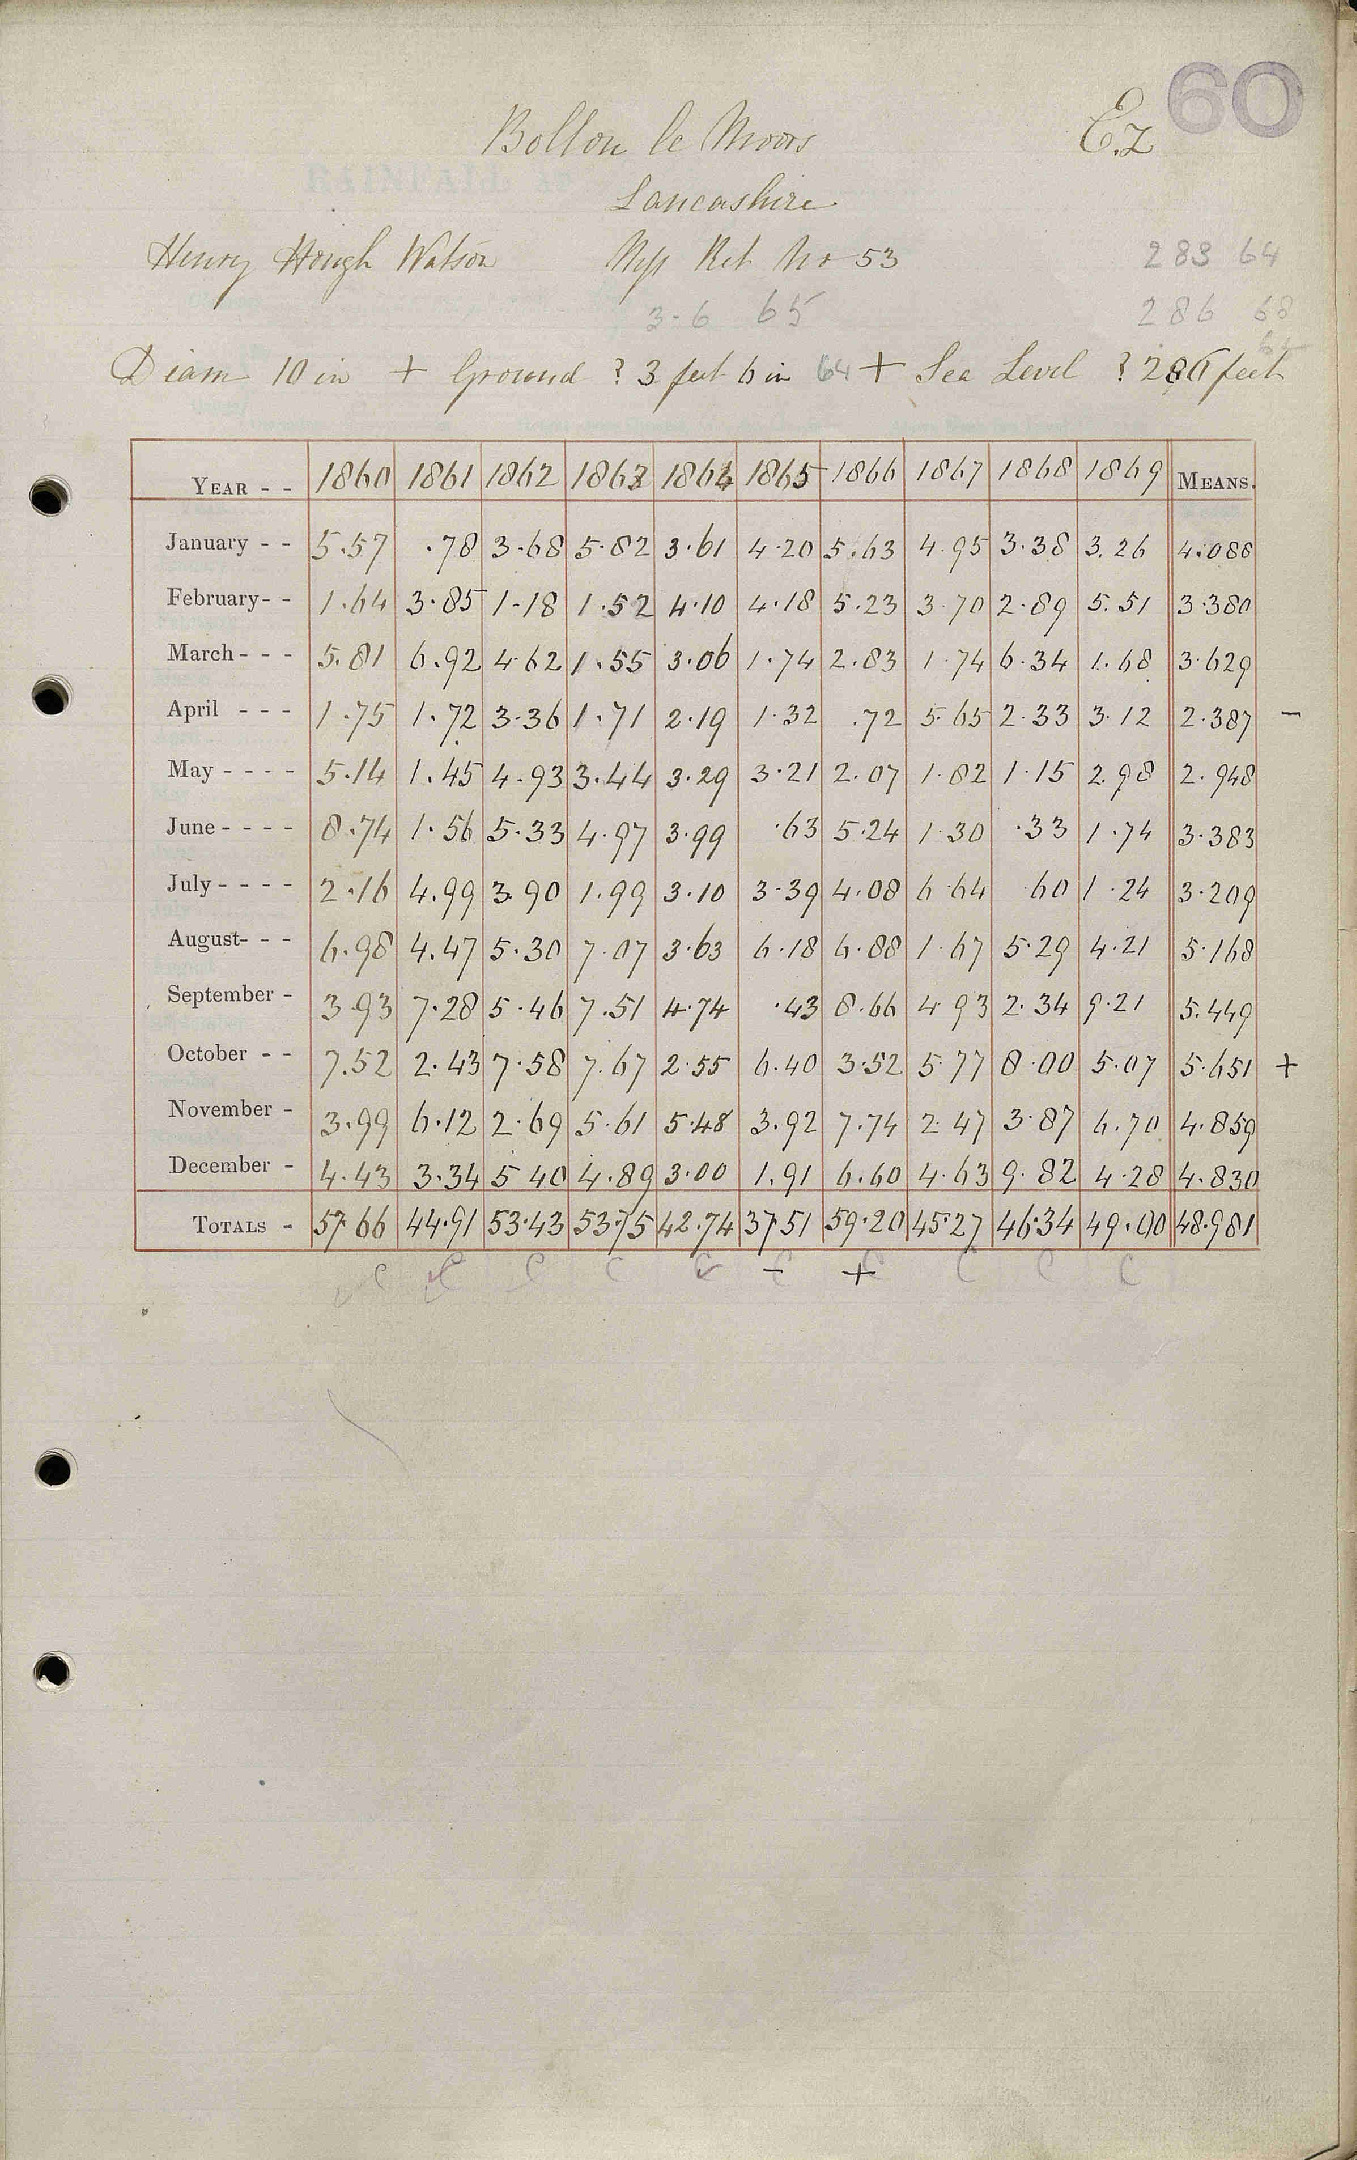 60
Bolton le Moors E.z
Lancashire
Henry Hough Watson Mss Ret No 53 283 64
3-6 65 286 68
64
Diam 10 in + Ground ? 3 feet 6 in 64 + Sea Level ? 286 feet
YEAR - - 1860 1861 1862 1863 1864 1865 1866 1867 1868 1869 MEANS.
January - - 5.57 .78 3.68 5.82 3.61 4.20 5.63 4.95 3.38 3.26 4.088
February - - 1.64 3.85 1.18 1.52 4.10 4.18 5.23 3.70 2.89 5.51 3.380
March - - - 5.81 6.92 4.62 1.55 3.06 1.74 2.83 1.74 6.34 1.68 3.629
April - - - 1.75 1.72 3.36 1.71 2.19 1.32 .72 5.65 2.33 3.12 2.387 -
May - - - - 5.14 1.45 4.93 3.44 3.29 3.21 2.07 1.82 1.15 2.98 2.948
June - - - - 8.74 1.56 5.33 4.97 3.99 .63 5.24 1.30 .33 1.74 3.383
July - - - - 2.16 4.99 3.90 1.99 3.10 3.39 4.08 6.64 60 1.24 3.209
August - - - 6.98 4.47 5.30 7.07 3.63 6.18 6.88 1.67 5.29 4.21 5.168
September - 3.93 7.28 5.46 7.51 4.74 .43 8.66 4.93 2.34 9.21 5.449
October - - 7.52 2.43 7.58 7.67 2.55 6.40 3.52 5.77 8.00 5.07 5.651 +
November - 3.99 6.12 2.69 5.61 5.48 3.92 7.74 2.47 3.87 6.70 4.859
December - 4.43 3.34 5 40 4.89 3.00 1.91 6.60 4.63 9.82 4.28 4.830
TOTALS - 57.66 44.91 53.43 53.75 42.74 37.51 59.20 45.27 46.34 49.00 48.981
C C C C C - C + C C C C